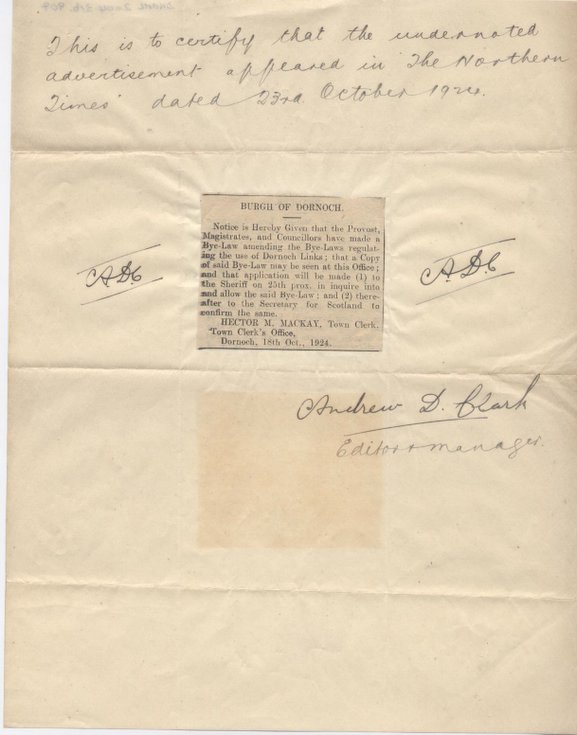 This is to certify that the undernoted
advertisement appeared in 'The Northern
Times' dated 23rd October 1924.
BURGH OF DORNOCH.
Notice is Hereby Given that the Provost,
Magistrates, and Councillors have made a
Bye-Law amending the Bye-Laws regulat-
ing the use of Dornoch Links; that a Copy
of said Bye-Law may be seen at this Office;
and that application will be made (1) to
the Sheriff on 25th prox. in inquire into
and allow the said Bye-Law; and (2) there-
after to the Secretary for Scotland to
confirm the same.
HECTOR M. MACKAY, Town Clerk.
Town Clerk's Office,
Dornoch, 18th Oct., 1924.
A.D.C
A.D.C
Andrew D. Clark
Editor & manager.